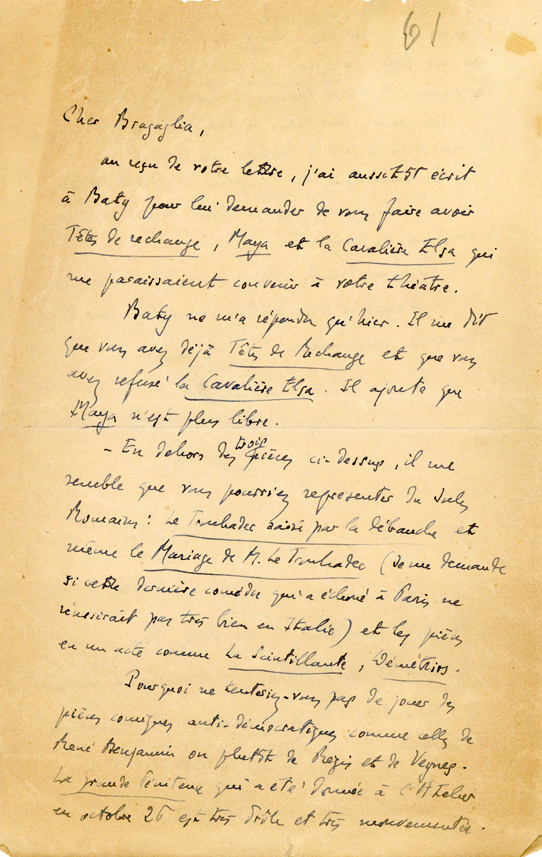 61
Cher Bragaglia,
au reçu de votre lettre, j'ai aussitôt écrit
à Baty pour lui demander de vous faire avoir
Têtes de rechange, Maya et la Cavalière Elsa qui
me paraissaient convenir à votre théatre.
Baty ne m'a répondu qu'hier. Il me dit
que vous avez déjà Têtes de Rechange et que vous
avez refusé la Cavalière Elsa. Il ajoute que
Maya n'est plus libre.
- En dehors des trois pièces ci-dessus, il me
semble que vous pourriez representer du Jules
Romains : Le Trouhadec saisi par la débauche et
même le Mariage de M. Le Trouhadec (Je me demande
si cette dernière comédie qui a échoué à Paris ne
réussirait pas très bien en Italie) et les pièces
en un acte comme La Scintillante, Démétrios.
Pourquoi ne tenteriez-vous pas de jouer des
pièces comiques anti-démocratiques comme celles de
René Benjamin ou plutôt de Régis et de Veynes.
La grande Pénitence qui a été donnée à l'Atelier
en octobre 26 est très drôle et très mouvementée.